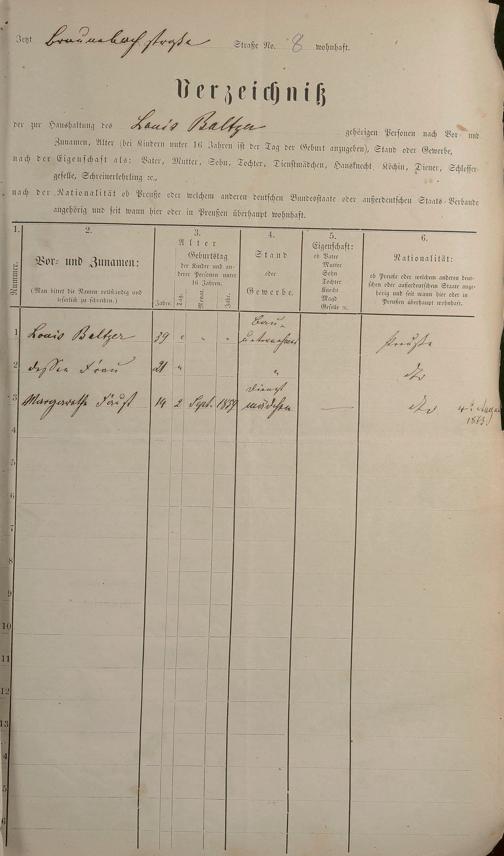 Jetzt Braunebachstraße Straße No. 8 wohnhaft.
Verzeichniß
der zur Haushaltung des Louis Baltzer gehörigen Personen nach Vor- und
Zunamen, Alter (bei Kindern unter 16 Jahren ist der Tag der Geburt anzugeben), Stand oder Gewerbe,
nach der Eigenschaft als: Vater, Mutter, Sohn, Tochter, Dienstmädchen, Hausknecht, Köchin, Diener, Schlosser-
geselle, Schreinerlehrling ꝛc.,
nach der Nationalität ob Preuße oder welchem anderen deutschen Bundesstaate oder außerdeutschen Staats-Verbande
angehörig und seit wann hier oder in Preußen überhaupt wohnhaft.
1. 2. 3. 4. 5. 6.
Nummer.
Vor- und Zunamen:
(Man bittet die Namen vollständig und
leserlich zu schreiben.)
Alter
Geburtstag
der Kinder und an-
derer Personen unter
16 Jahren.
Jahre. Tag. Monat. Jahr.
Stand
oder
Gewerbe.
Eigenschaft:
ob Vater
Mutter
Sohn
Tochter
Knecht
Magd
Geselle ꝛc.
Nationalität:
ob Preuße oder welchem anderen deut-
schen oder außerdeutschen Staate ange-
hörig und seit wann hier oder in
Preußen überhaupt wohnhaft.
1 Louis Baltzer 39 " " " Bau-
unternehmer Preuße
2 dessen Frau 21 " " dto
3 Margarethe Faust 14 2 Sept. 1859 Dienst
mädchen — dto
4
5
6
7
8
9
10
11
12
13
4
5
6